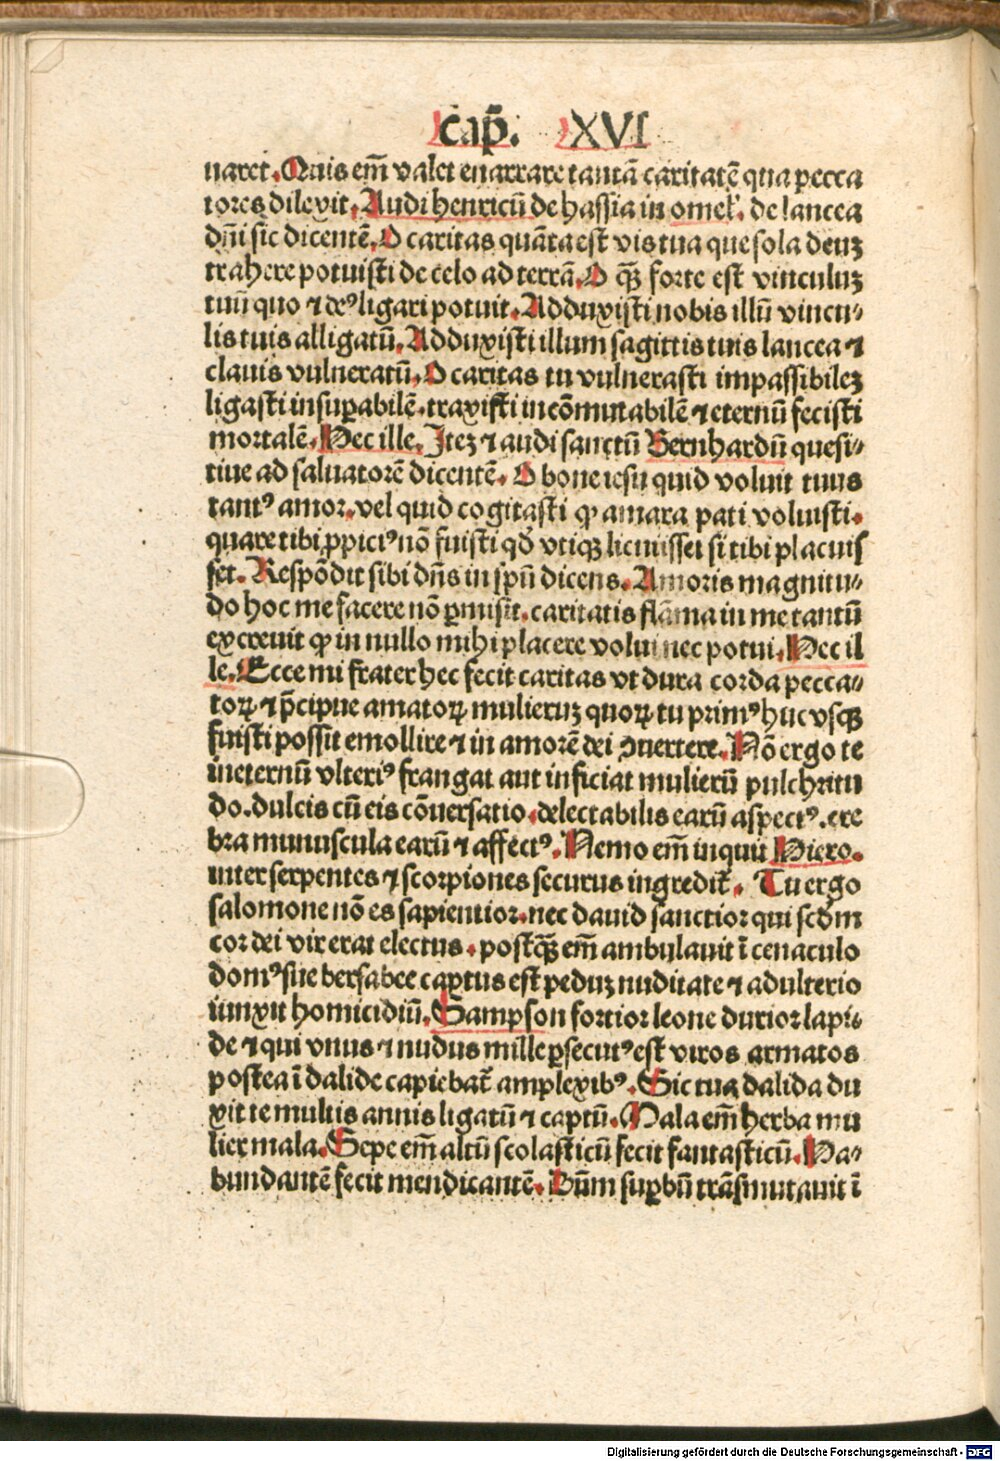 Cap̄. XVI
naret. Quis em̄ valet enarrare tantā caritatē qua pecca
tores dilexit. Audi henricū de hassia in omel'. de lancea
dn̄i sic dicentē. O caritas quāta est vis tua que sola deuʒ
trahere potuisti de celo ad terrā. O q̄ꝫ forte est vinculuʒ
tuū quo ⁊ deꝰ ligari potuit. Adduxisti nobis illū vincu⸗
lis tuis alligatū. Adduxisti illum sagittis tuis lancea ⁊
clauis vulneratū. O caritas tu vulnerasti impassibileʒ
ligasti insuꝑabilē. traxisti incōmutabilē ⁊ eternū fecisti
mortalē. Hec ille. Iteʒ ⁊ audi sanctū Bernhardū quesi⸗
tiue ad saluatorē dicentē. O bone iesu quid voluit tuus
tantꝰ amor. vel quid cogitasti ꝙ amara pati voluisti.
quare tibi ꝓpiciꝰ nō fuisti qd̄ vtiqꝫ licuisset si tibi placuis
set. Respōdit sibi dn̄s in sp̄u dicens. Amoris magnitu⸗
do hoc me facere nō ꝑmisit. caritatis flāma in me tantū
excreuit ꝙ in nullo mihi placere volui nec potui. Hec il
le. Ecce mi frater hec fecit caritas vt dura corda pecca⸗
toꝝ ⁊ p̄cipue amatoꝝ mulieruʒ quoꝝ tu primꝰ huc vsqꝫ
fuisti possit emollire ⁊ in amorē dei ꝯuertere. Nō ergo te
ineternū vlteriꝰ frangat aut inficiat mulierū pulchritu
do. dulcis cū eis cōuersatio. delectabilis earū aspectꝰ. cre
bra munuscula earū ⁊ affectꝰ. Nemo em̄ inquit Hiero.
inter serpentes ⁊ scorpiones securus ingredit̄. Tu ergo
salomone nō es sapientior. nec dauid sanctior qui scd̄m
cor dei vir erat electus. postq̄ꝫ em̄ ambulauit ī cenaculo
domꝰ sue bersabee captus est peduʒ nuditate ⁊ adulterio
iunxit homicidiū. Sampson fortior leone durior lapi⸗
de ⁊ qui vnus ⁊ nudus mille ꝑsecutꝰ est viros armatos
postea ī dalide capiebat̄ amplexibꝰ. Sic tua dalida du
xit te multis annis ligatū ⁊ captū. Mala em̄ herba mu
lier mala. Sepe em̄ altū scolasticū fecit fantasticū. Ha⸗
bundantē fecit mendicantē. Dūm suꝑbū trāsmutauit ī
Digitalisierung gefördert durch die Deutsche Forschungsgemeinschaft - DFG